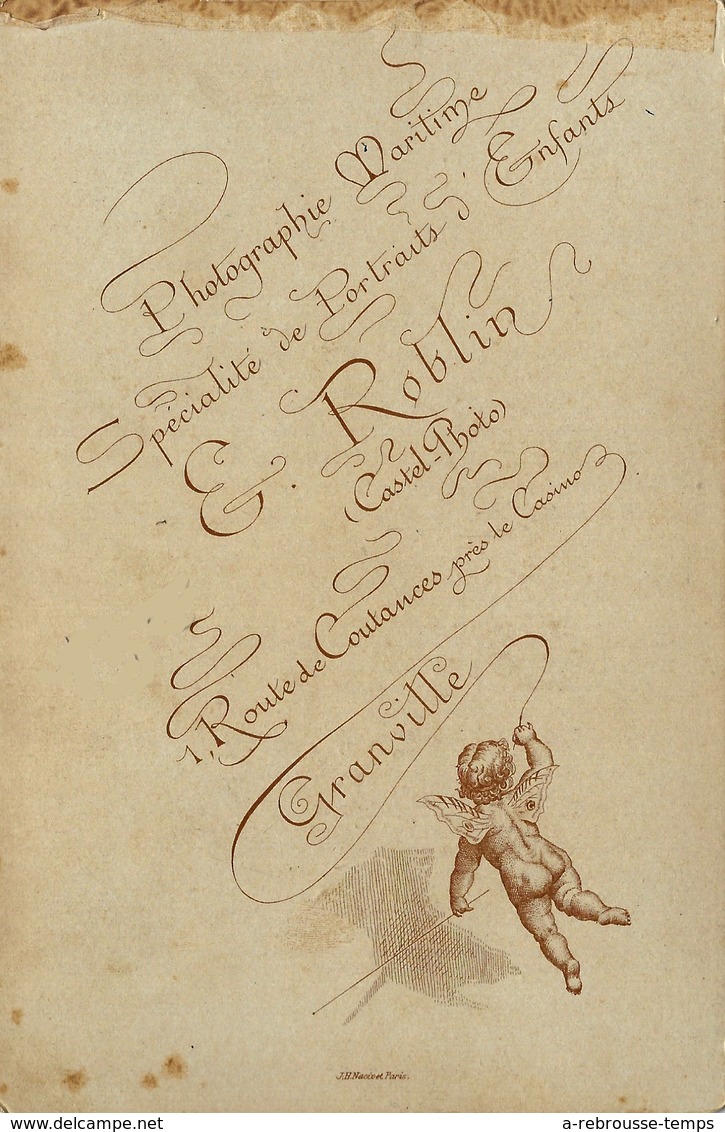 Photographie Maritime
Spécialité de Portraits d'Enfants
E. Roblin
(Castel-Photo)
1, Route de Coutances près le Casino
Granville
J.H. Nacivet Paris.
delcampe.net
a-rebrousse-temps